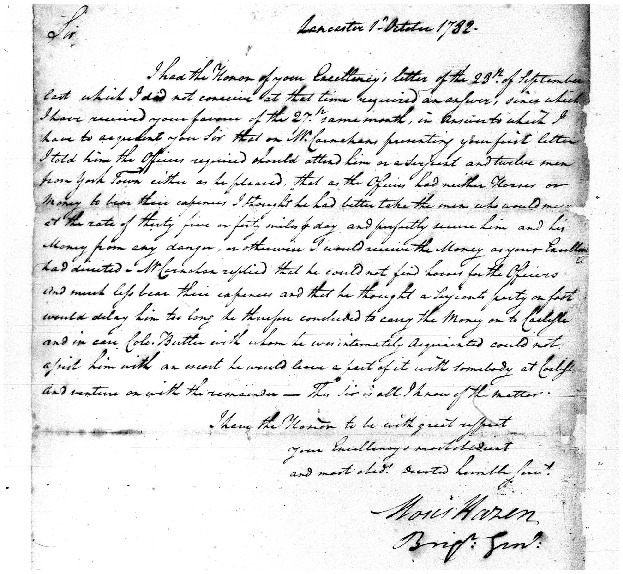 Sir
Lancaster 1st October 1782.
I had the Honor of your Excellency's letter of the 23th of September
last which I did not conceive at that time required an answer, since which
I have received your favour of the 27th same month, in Answer to which I
have to acquaint you Sir that on Mr. Carnahans presenting your first letter
I told him the Officers required should attend him or a Serjent and twelve men
from York Town either as he pleased, that as the Officers had neither Horses or
Money to bear their expences I thought he had better take the men who would
at the rate of thirty five or forty miles day and perfectly secure him and his
Money from any danger, or otherwise I would receive the Money as your Excellen
had directed. Mr Carnahan replied that he could not find horses for the Officers
and much less bear their expences and that he thought a Serjeants party on foot
would delay him too long he therefore concluded to carry the Money on to Carlisle
and in case Colo. Butler with whom he was intimately Acquainted could not
assist him with an escort he would leave a part of it with somebody at Carlisle
and venture on with the remainder — This Sir is all I know of the matter.
I have the Honor to be with great respect
your Excellency's most obedient
and most obed. devoted humble Servt.
Moses Hazen
Brigr. Genl.